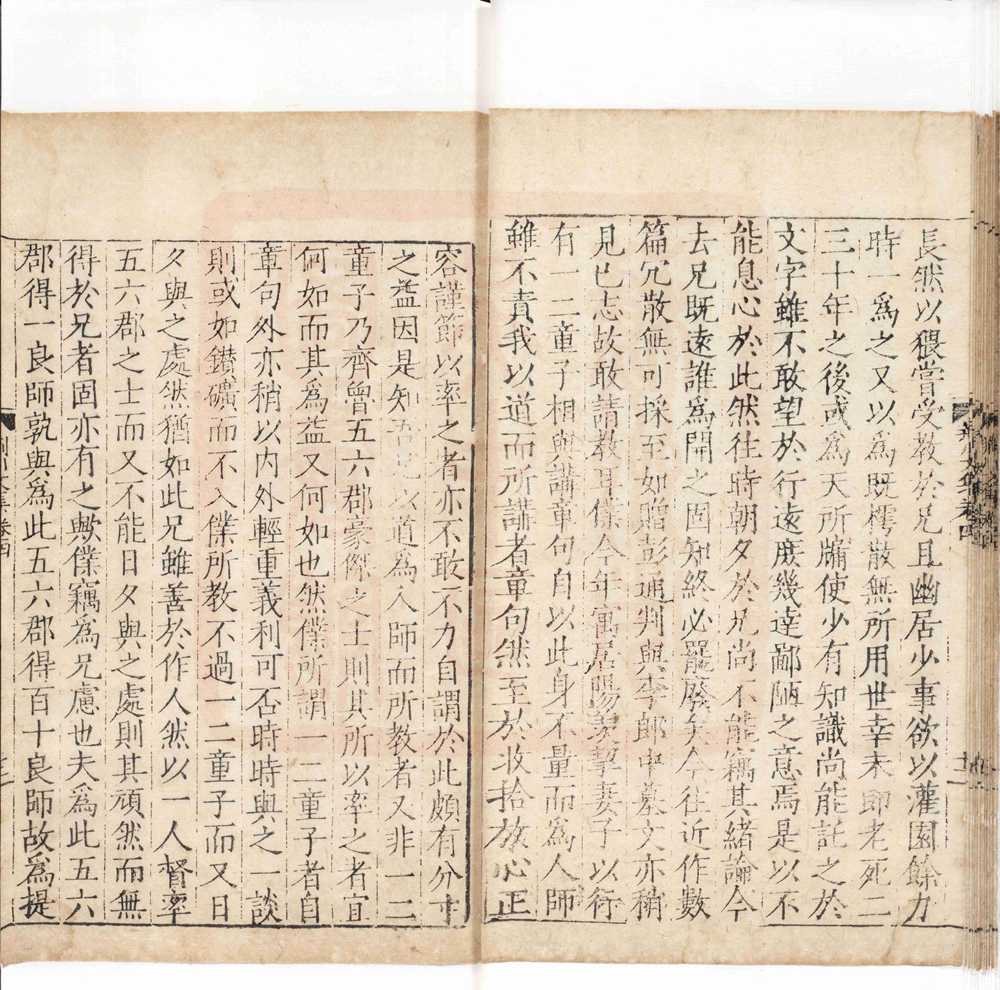 長然以猥嘗受教於兄且幽居少事欲以灌園餘力
時一為之又以為既樗散無所用世幸未即老死二
三十年之後或為天所牖使少有知識尚能託之於
文字雖不敢望於行遠庶幾達鄙陋之意焉是以不
能息心於此然往時朝夕於兄尚不能竊其緒論今
去兄既遠誰為開之固知終必罷廢矣今往近作數
篇冗散無可採至如贈彭通判與李郎中墓文亦稍
見己志故敢請教耳僕今年寓居陽羡挈妻子以行
有一二童子相與講章句自以此身不量而為人師
雖不責我以道而所講者章句然至於收拾放心正
容謹節以率之者亦不敢不力自謂於此頗有分寸
之益因是知吾兄以道為人師而所教者又非一二
童子乃齊魯五六郡豪傑之士則其所以率之者宜
何如而其為益又何如也然僕所謂一二童子者自
章句外亦稍以內外輕重義利可否時時與之一談
則或如鑚礦而不入僕所教不過一二童子而又日
夕與之處然猶如此兄雖善於作人然以一人督率
五六郡之士而又不能日夕與之處則其頑然而無
得於兄者固亦有之歟僕竊為兄慮也夫為此五六
郡得一良師孰與為此五六郡得百十良師故為提